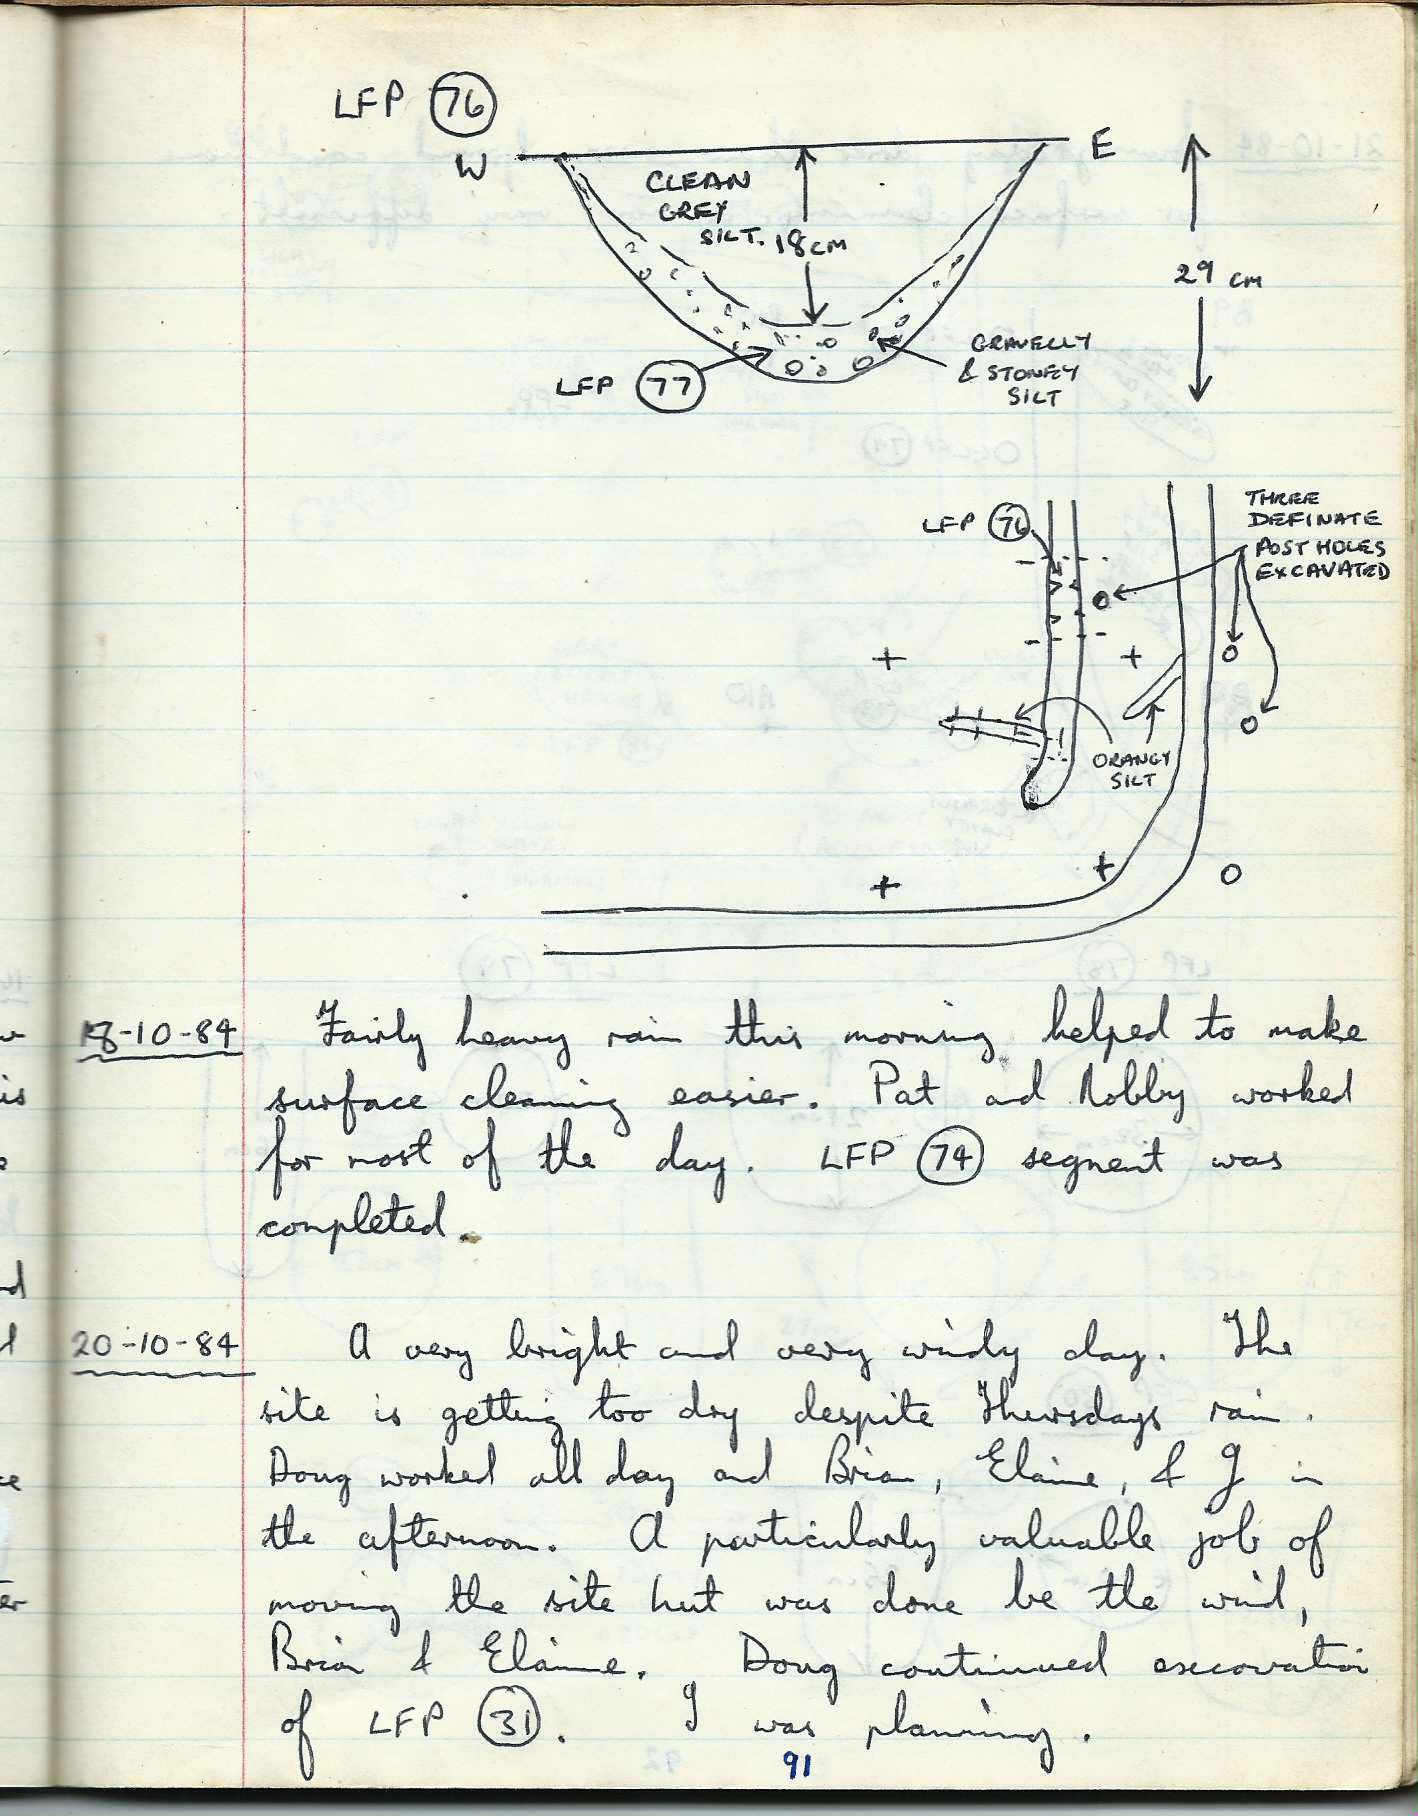 LFP 76
W E
CLEAN
GREY
SILT. 18CM
29 CM
GRAVELLY
& STONEY
SILT
LFP 77
THREE
DEFINATE
POST HOLES
EXCAVATED
LFP 76
ORANGY
SILT
18-10-84 Fairly heavy rain this morning helped to make
surface cleaning easier. Pat and Robby worked
for most of the day. LFP 74 segment was
completed.
20-10-84 A very bright and very windy day. The
site is getting too dry despite Thursdays rain.
Doug worked all day and Brian, Elaine, & I in
the afternoon. A particularly valuable job of
moving the site hut was done be the wind,
Brian & Elaine. Doug continued excavation
of LFP 31. I was planning.
91